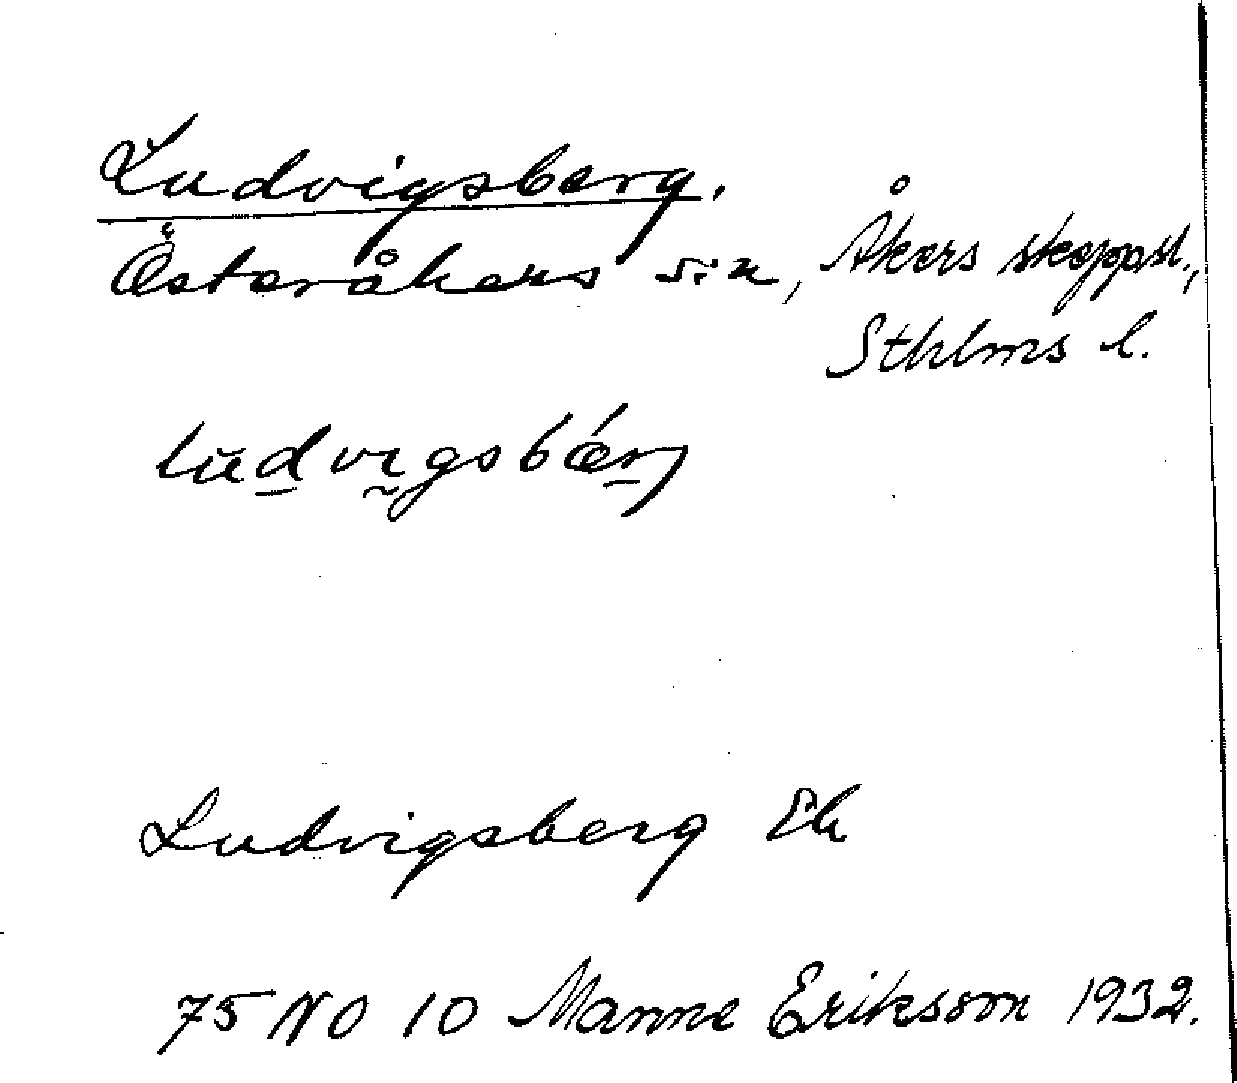 Ludvigsberg.
Österåkers sn, Åkers skeppsl.,
Sthlms l.
ludvigsbärj
Ludvigsberg Ek
75 NO 10 Manne Eriksson 1932.